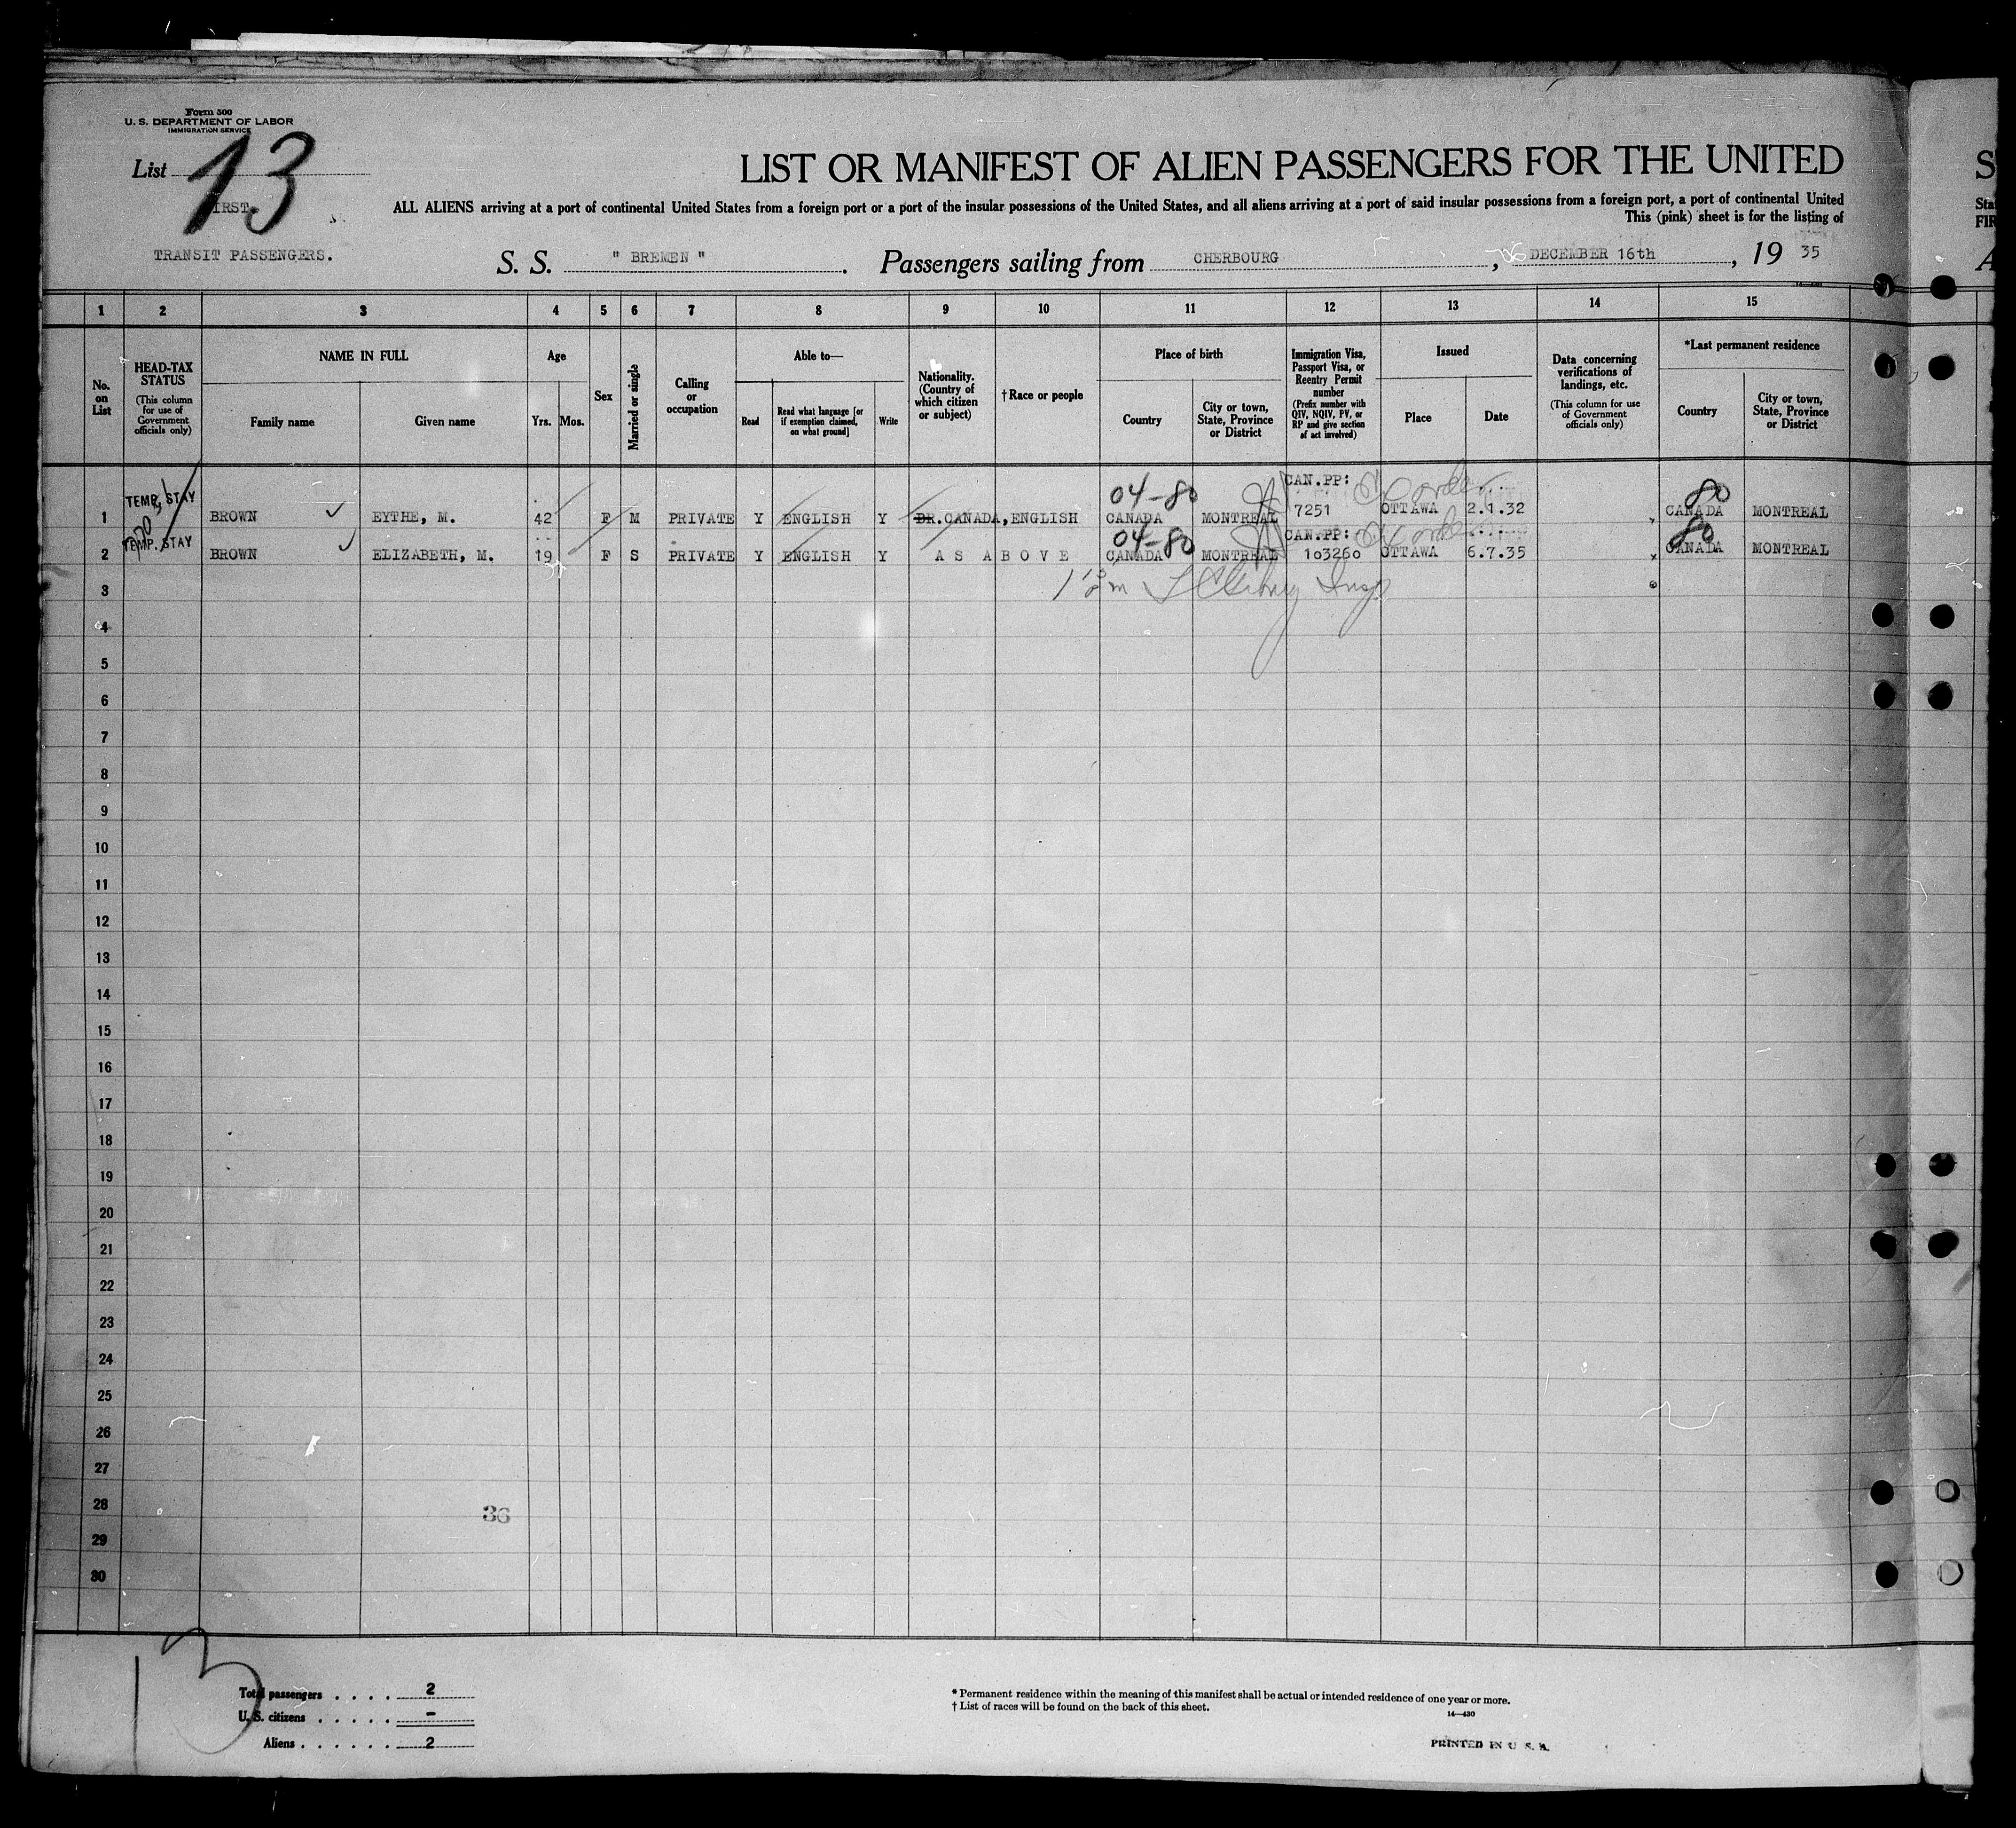 Form 500
U. S. DEPARTMENT OF LABOR
IMMIGRATION SERVICE
List 13
FIRST.
TRANSIT PASSENGERS.
LIST OR MANIFEST OF ALIEN PASSENGERS FOR THE UNITED
ALL ALIENS arriving at a port of continental United States from a foreign port or a port of the insular possessions of the United States, and all aliens arriving at a port of said insular possessions from a foreign port, a port of continental United
This (pink) sheet is for the listing of
S. S. " BREMEN ". Passengers sailing from CHERBOURG, DECEMBER 16th, 19 35
1 2 3 4 5 6 7 8 9 10 11 12 13 14 15
No. on List
HEAD-TAX STATUS
(This column for use of Government officials only)
NAME IN FULL
Family name Given name
Age
Yrs. Mos.
Sex
Married or single
Calling or occupation
Able to—
Read
Read what language [or if exemption claimed, on what ground]
Write
Nationality. (Country of which citizen or subject)
†Race or people
Place of birth
Country
City or town, State, Province or District
Immigration Visa, Passport Visa, or Reentry Permit number
(Prefix number with QIV, NQIV, PV, or RP and give section of act involved)
Issued
Place Date
Data concerning verifications of landings, etc.
(This column for use of Government officials only)
*Last permanent residence
Country
City or town, State, Province or District
TEMP. STAY 04-80 CAN.PP: 80
1 BROWN EYTHE, M. 42 F M PRIVATE Y ENGLISH Y BR.CANADA, ENGLISH CANADA MONTREAL 7251 OTTAWA 2.1.32 CANADA MONTREAL
TEMP. STAY 04-80 CAN.PP: 80
2 BROWN ELIZABETH, M. 19 F S PRIVATE Y ENGLISH Y AS ABOVE CANADA MONTREAL 103260 OTTAWA 6.7.35 CANADA MONTREAL
3
4
5
6
7
8
9
10
11
12
13
14
15
16
17
18
19
20
21
22
23
24
25
26
27
28
36
29
30
13
Total passengers . . . . 2
U. S. citizens . . . . . -
Aliens . . . . . . 2
* Permanent residence within the meaning of this manifest shall be actual or intended residence of one year or more.
† List of races will be found on the back of this sheet.
14—430
PRINTED IN U. S. A.